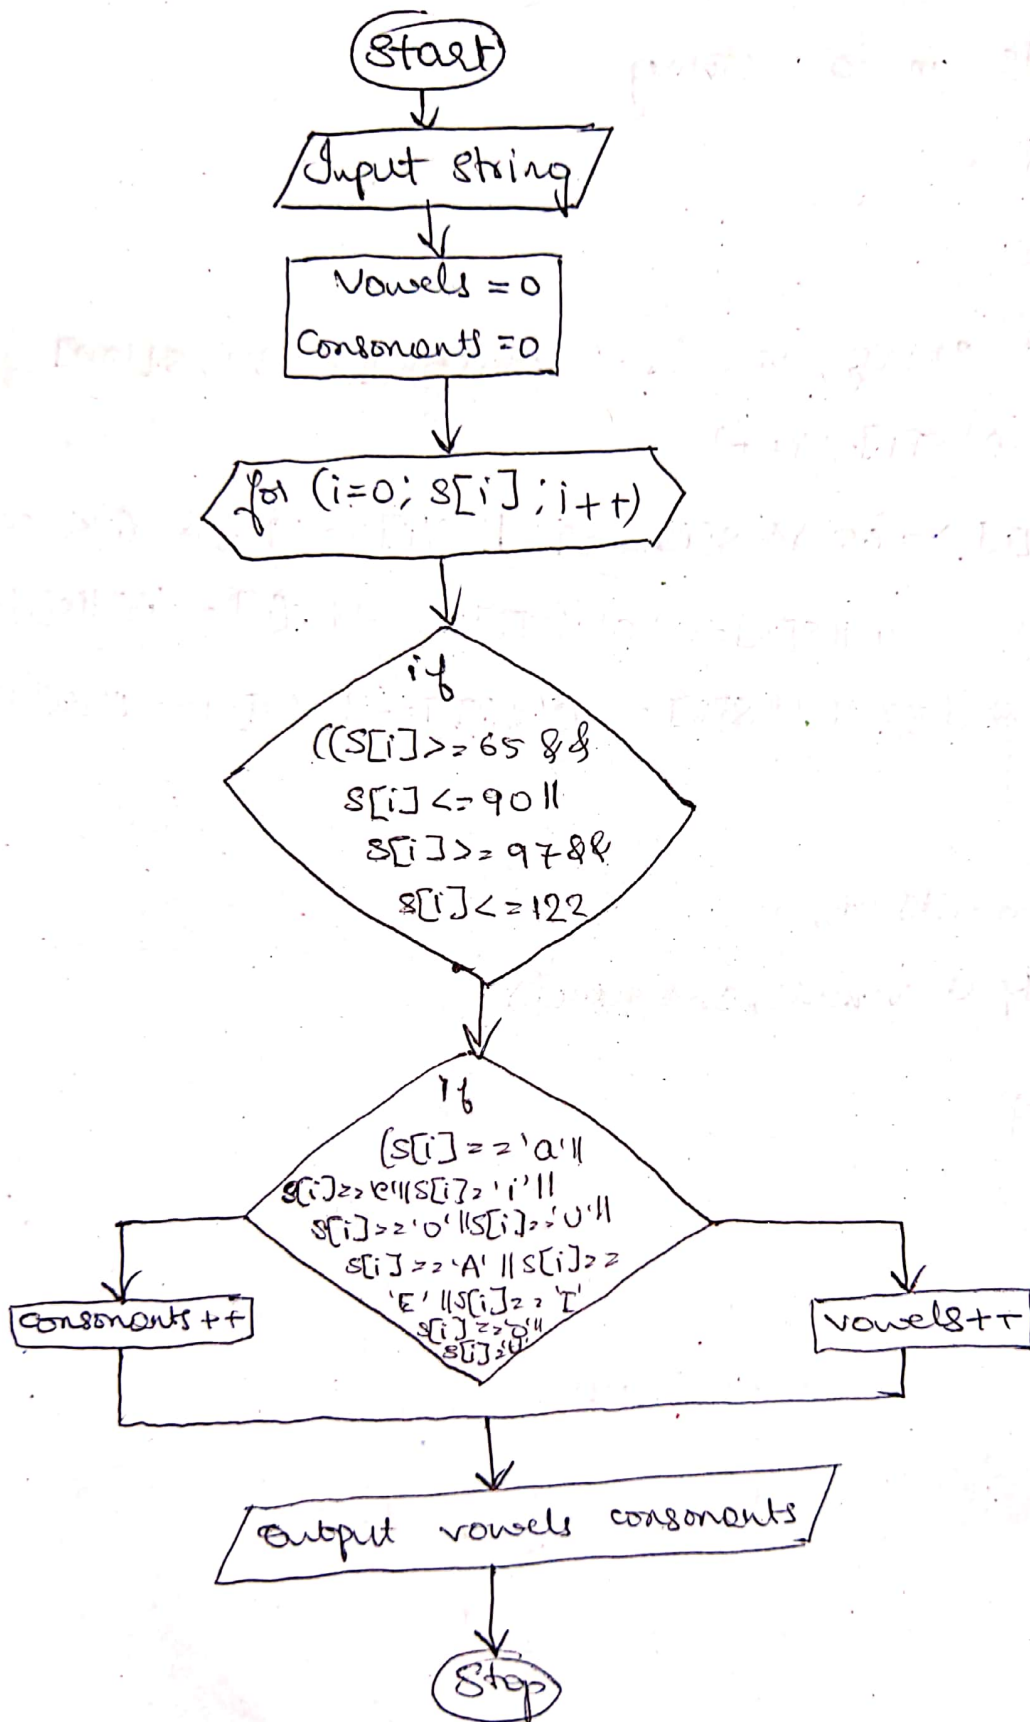 Start
Input string
Vowels = 0
Consonants = 0
for (i=0; s[i]; i++)
if
((S[i]>=65 &&
S[i] <=90 ||
S[i]>=97 &&
S[i]<=122
If
(S[i]=='a'||
S[i]=='e'||S[i]='i'||
S[i]=='o'||S[i]=='u'||
S[i]=='A' || S[i]==
'E' ||S[i]== 'I'
S[i]=='O'||
S[i]='U'
consonants ++
vowels++
output vowels consonants
Stop